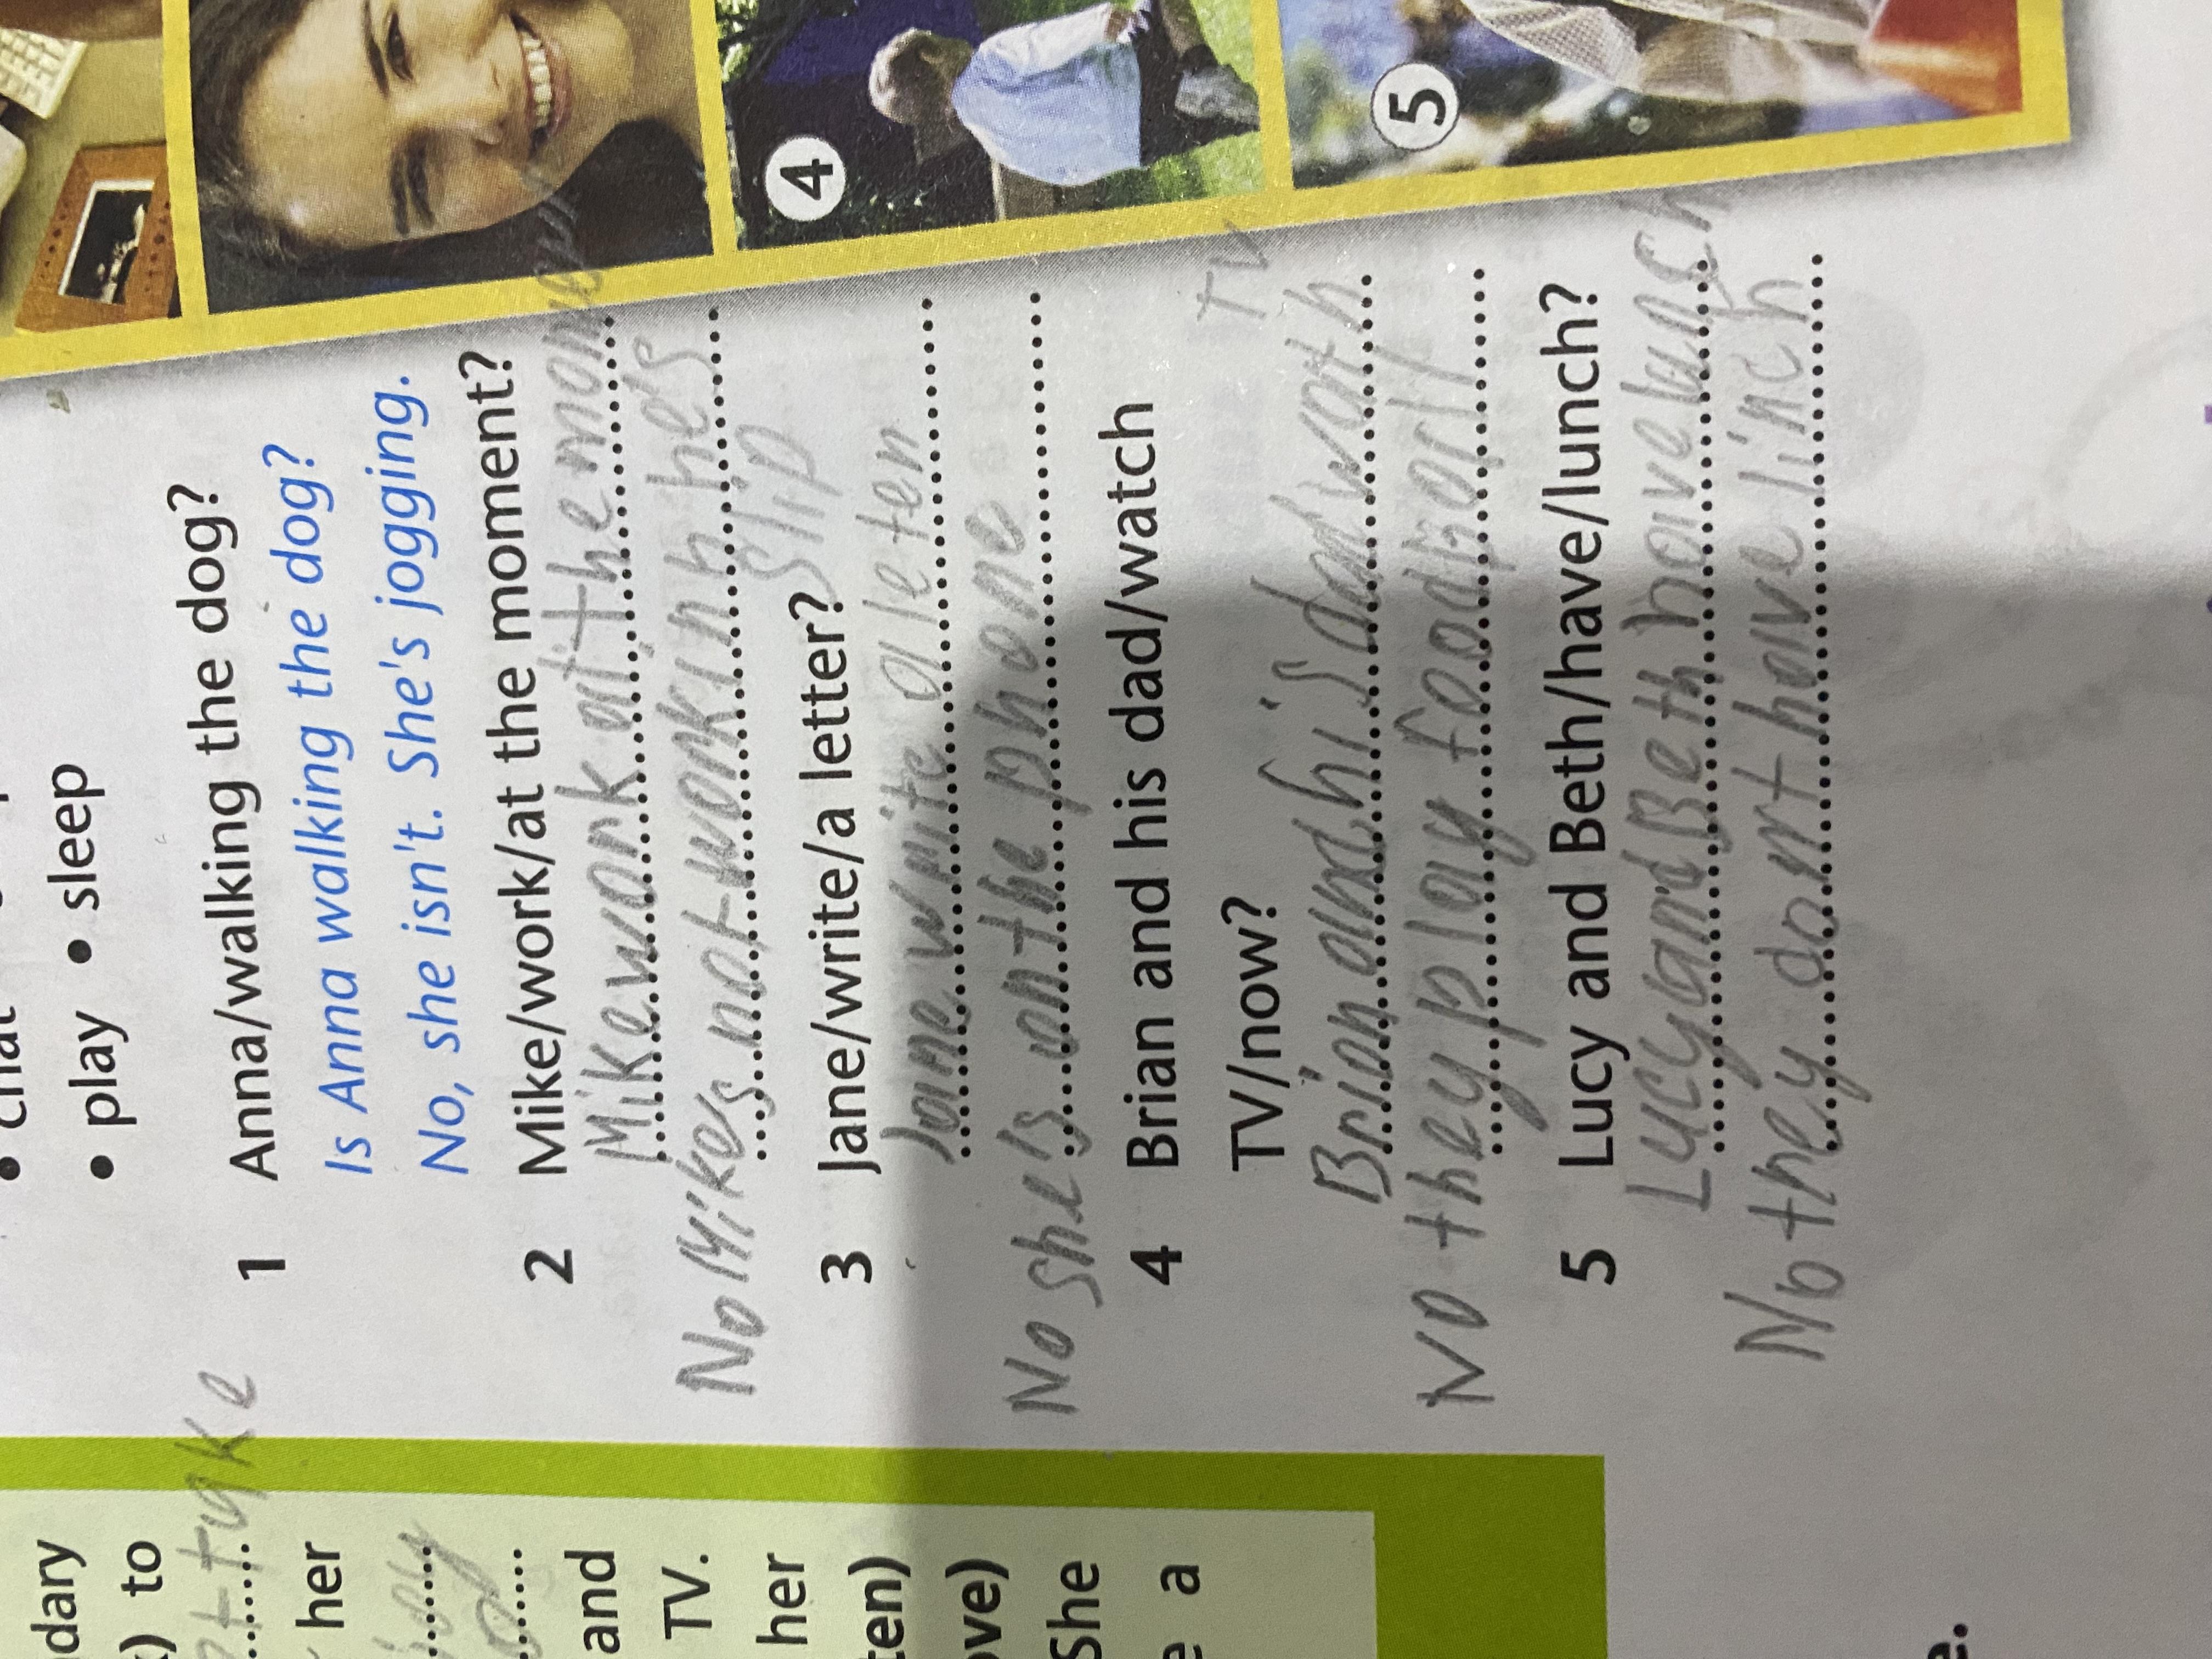 • play • sleep
1 Anna/walking the dog?
Is Anna walking the dog?
No, she isn't. She's jogging.
2 Mike/work/at the moment?
Mike work at the
No Mike's not workinh he's
Slip
3 Jane/write/a letter?
Jane write a leten
No she's on the phone
4 Brian and his dad/watch
TV/now?
TV
Brian and his dad wath
No they play
5 Lucy and Beth/have/lunch?
Lucy and Beth have lunsch
No they dont have linch
4
5
dary
) to
take
her
and
TV.
her
ten)
ove)
She
e a
e.